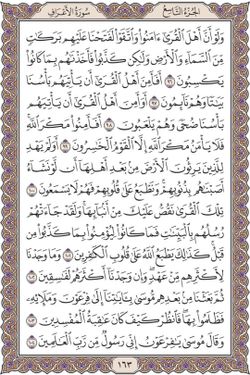 الجزء التاسع سورة الأعراف
ولو أن أهل القرى ءامنوا واتقوا لفتحنا عليهم بركت
من السماء والأرض ولكن كذبوا فأخذنهم بما كانوا
يكسبون ٩٦ أفأمن أهل القرى أن يأتيهم بأسنا
بيتا وهم نائمون ٩٧ أوأمن أهل القرى أن يأتيهم
بأسنا ضحى وهم يلعبون ٩٨ أفأمنوا مكر الله
فلا يأمن مكر الله إلا القوم الخسرون ٩٩ أولم يهد
للذين يرثون الأرض من بعد أهلها أن لو نشاء
أصبنهم بذنوبهم ونطبع على قلوبهم فهم لا يسمعون ١٠٠
تلك القرى نقص عليك من أنبائها ولقد جاءتهم
رسلهم بالبينت فما كانوا ليؤمنوا بما كذبوا من
قبل كذلك يطبع الله على قلوب الكفرين ١٠١ وما وجدنا
لأكثرهم من عهد وإن وجدنا أكثرهم لفسقين ١٠٢
ثم بعثنا من بعدهم موسى بايتنا إلى فرعون وملإيه
فظلموا بها فانظر كيف كان عقبة المفسدين ١٠٣
وقال موسى يفرعون إني رسول من رب العلمين ١٠٤
١٦٣